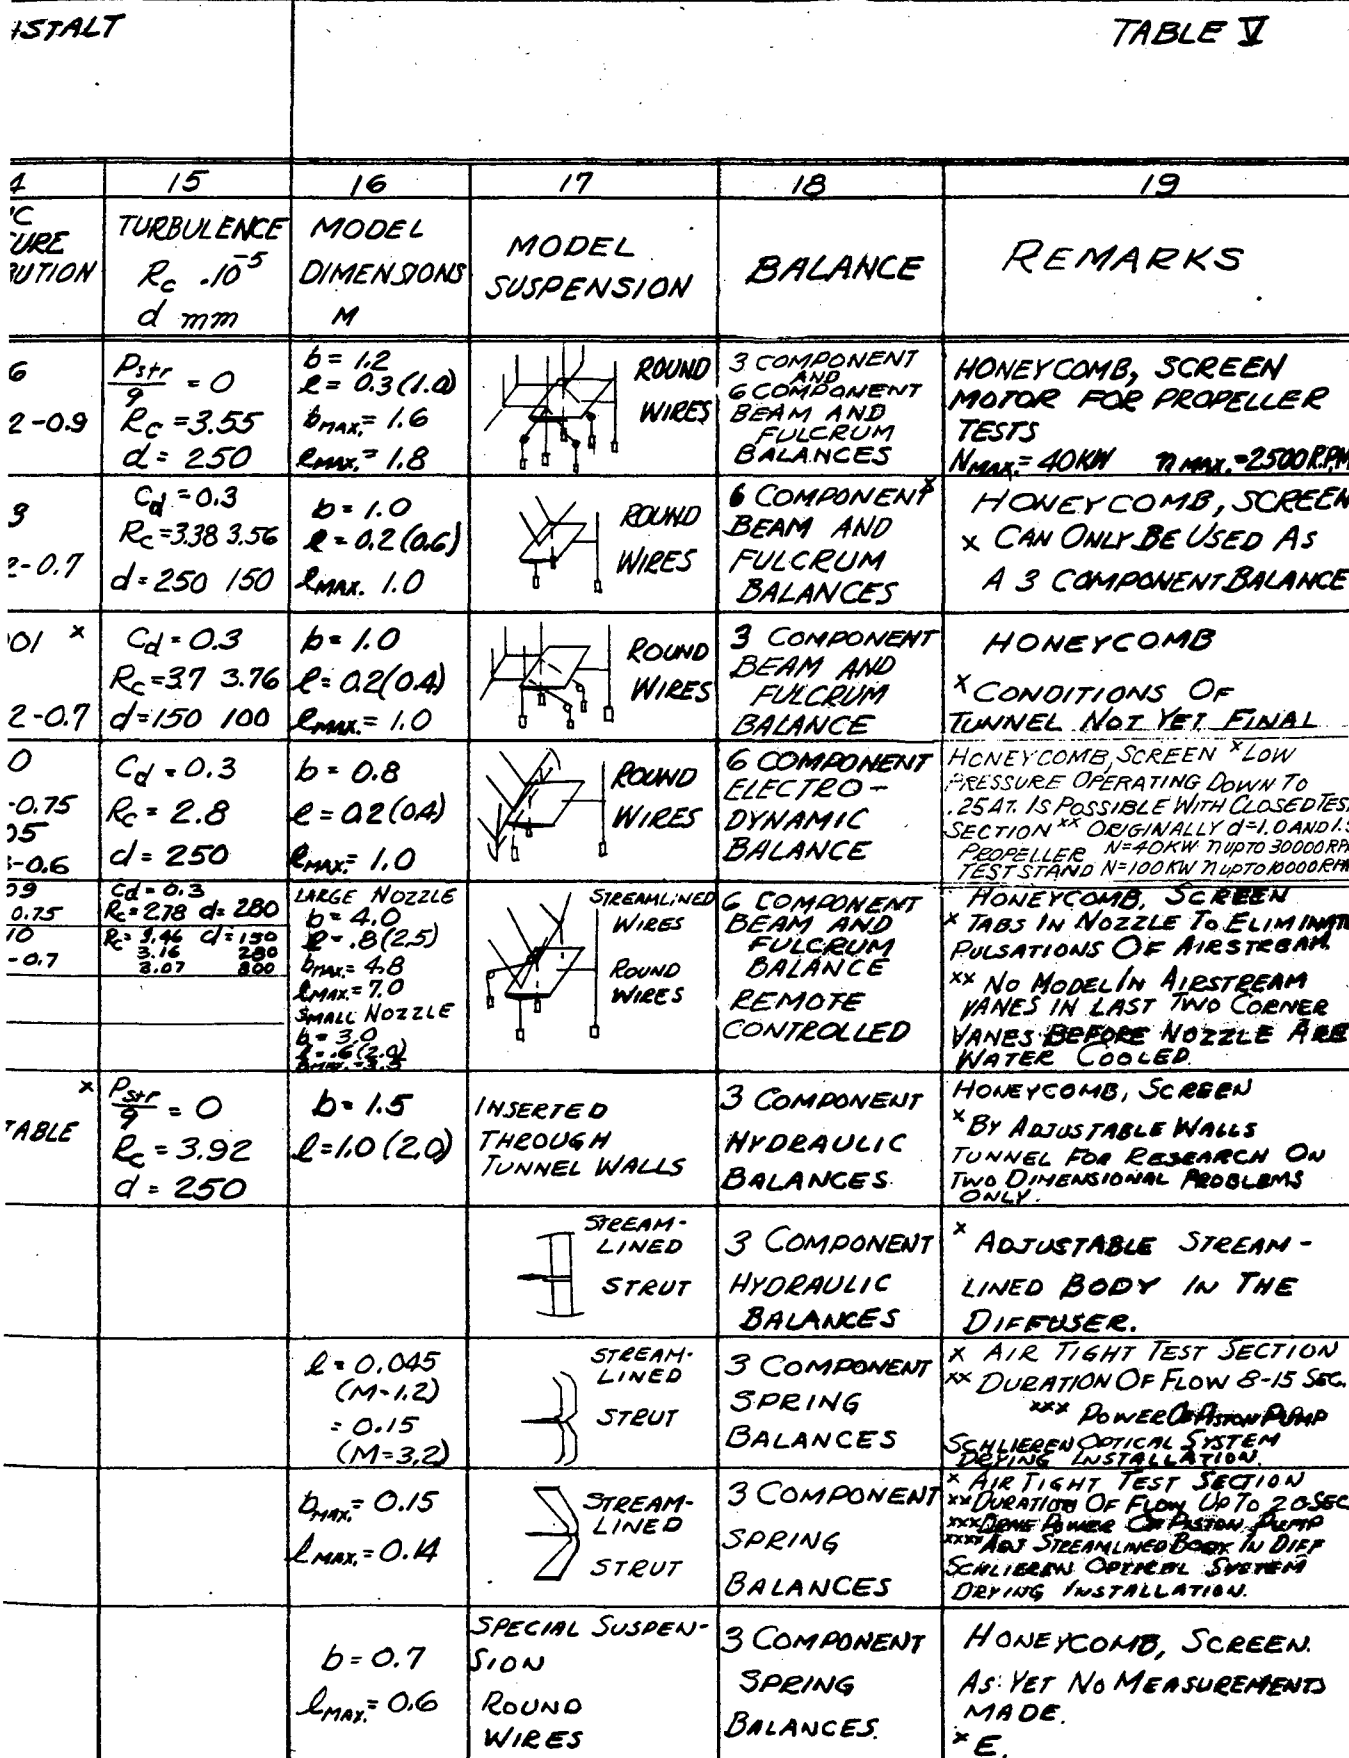 ISTALT
TABLE V
4 15 16 17 18 19
C
URE
BUTION
TURBULENCE
Rc .10^-5
d mm
MODEL
DIMENSIONS
M
MODEL
SUSPENSION
BALANCE
REMARKS
6
2-0.9
Pstr/q = 0
Rc = 3.55
d = 250
b = 1.2
l = 0.3 (1.0)
bMAX. = 1.6
lMAX. = 1.8
ROUND
WIRES
3 COMPONENT
AND
6 COMPONENT
BEAM AND
FULCRUM
BALANCES
HONEYCOMB, SCREEN
MOTOR FOR PROPELLER
TESTS
NMAX. = 40 KW n MAX. = 2500 R.P.M
9
2-0.7
Cd = 0.3
Rc = 3.38 3.56
d = 250 150
b = 1.0
l = 0.2 (0.6)
lMAX. 1.0
ROUND
WIRES
6 COMPONENT x
BEAM AND
FULCRUM
BALANCES
HONEYCOMB, SCREEN
x CAN ONLY BE USED AS
A 3 COMPONENT BALANCE
001 x
2-0.7
Cd = 0.3
Rc = 3.7 3.76
d = 150 100
b = 1.0
l = 0.2 (0.4)
lMAX. = 1.0
ROUND
WIRES
3 COMPONENT
BEAM AND
FULCRUM
BALANCE
HONEYCOMB
x CONDITIONS OF
TUNNEL NOT YET FINAL
0
-0.75
05
-0.6
Cd = 0.3
Rc = 2.8
d = 250
b = 0.8
l = 0.2 (0.4)
lMAX. = 1.0
ROUND
WIRES
6 COMPONENT
ELECTRO-
DYNAMIC
BALANCE
HONEYCOMB, SCREEN x LOW
PRESSURE OPERATING DOWN TO
.25 AT. IS POSSIBLE WITH CLOSED TES
SECTION xx ORIGINALLY d=1.0 AND 1.5
PROPELLER N=40KW n UP TO 30000 RP
TEST STAND N=100 KW n UP TO 10000 RPM
09
0.75
10
-0.7
Cd = 0.3
Rc = 2.78 d = 280
Rc = 3.46 d = 150
3.16 280
3.07 300
LARGE NOZZLE
b = 4.0
l = .8 (2.5)
bMAX. = 4.8
lMAX. = 7.0
SMALL NOZZLE
b = 3.0
l = .6 (2.0)
bMAX. = 3.5
STREAMLINED
WIRES
ROUND
WIRES
6 COMPONENT
BEAM AND
FULCRUM
BALANCE
REMOTE
CONTROLLED
HONEYCOMB, SCREEN
x TABS IN NOZZLE TO ELIMINATE
PULSATIONS OF AIRSTREAM.
xx NO MODEL IN AIRSTREAM
VANES IN LAST TWO CORNER
VANES BEFORE NOZZLE ARE
WATER COOLED.
x
TABLE
Pstr/q = 0
Rc = 3.92
d = 250
b = 1.5
l = 1.0 (2.0)
INSERTED
THROUGH
TUNNEL WALLS
3 COMPONENT
HYDRAULIC
BALANCES.
HONEYCOMB, SCREEN
x BY ADJUSTABLE WALLS
TUNNEL FOR RESEARCH ON
TWO DIMENSIONAL PROBLEMS
ONLY.
STREAM-
LINED
STRUT
3 COMPONENT
HYDRAULIC
BALANCES
x ADJUSTABLE STREAM-
LINED BODY IN THE
DIFFUSER.
l = 0.045
(M=1.2)
= 0.15
(M=3.2)
STREAM-
LINED
STRUT
3 COMPONENT
SPRING
BALANCES
x AIR TIGHT TEST SECTION
xx DURATION OF FLOW 8-15 SEC.
xxx POWER OF PISTON PUMP
SCHLIEREN OPTICAL SYSTEM
DRYING INSTALLATION.
bMAX. = 0.15
lMAX. = 0.14
STREAM-
LINED
STRUT
3 COMPONENT
SPRING
BALANCES
x AIR TIGHT TEST SECTION
xx DURATION OF FLOW UP TO 20 SEC
xxx POWER OF PISTON PUMP
xxxx ADJ STREAMLINED BODY IN DIFF
SCHLIEREN OPTICAL SYSTEM
DRYING INSTALLATION.
b = 0.7
lMAX. = 0.6
SPECIAL SUSPEN-
SION
ROUND
WIRES
3 COMPONENT
SPRING
BALANCES.
HONEYCOMB, SCREEN.
AS YET NO MEASUREMENTS
MADE.
x E.